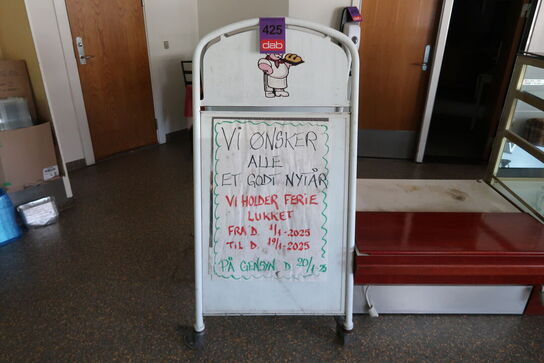 425
dab
VI ØNSKER
ALLE
ET GODT NYTÅR
VI HOLDER FERIE
LUKKET
FRA D. 1/1-2025
TIL D. 19/1-2025
PÅ GENSYN D. 20/1-25